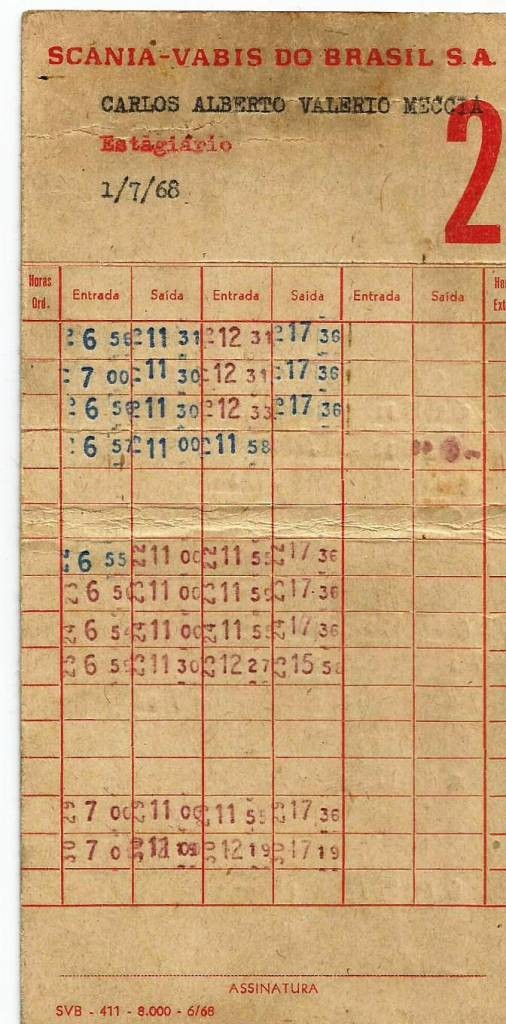 SCANIA-VABIS DO BRASIL S.A.
CARLOS ALBERTO VALERIO MECCIA
Estagiário
1/7/68
2
Horas Ord. Entrada Saída Entrada Saída Entrada Saída
6 56 11 31 12 31 17 36
7 00 11 30 12 31 17 36
6 56 11 30 12 33 17 36
6 57 11 00 11 58
6 55 11 00 11 55 17 36
6 50 11 00 11 59 17 36
6 54 11 00 11 55 17 36
6 59 11 30 12 27 15 58
7 00 11 00 11 55 17 36
7 0 12 19 17 19
ASSINATURA
SVB - 411 - 8.000 - 6/68